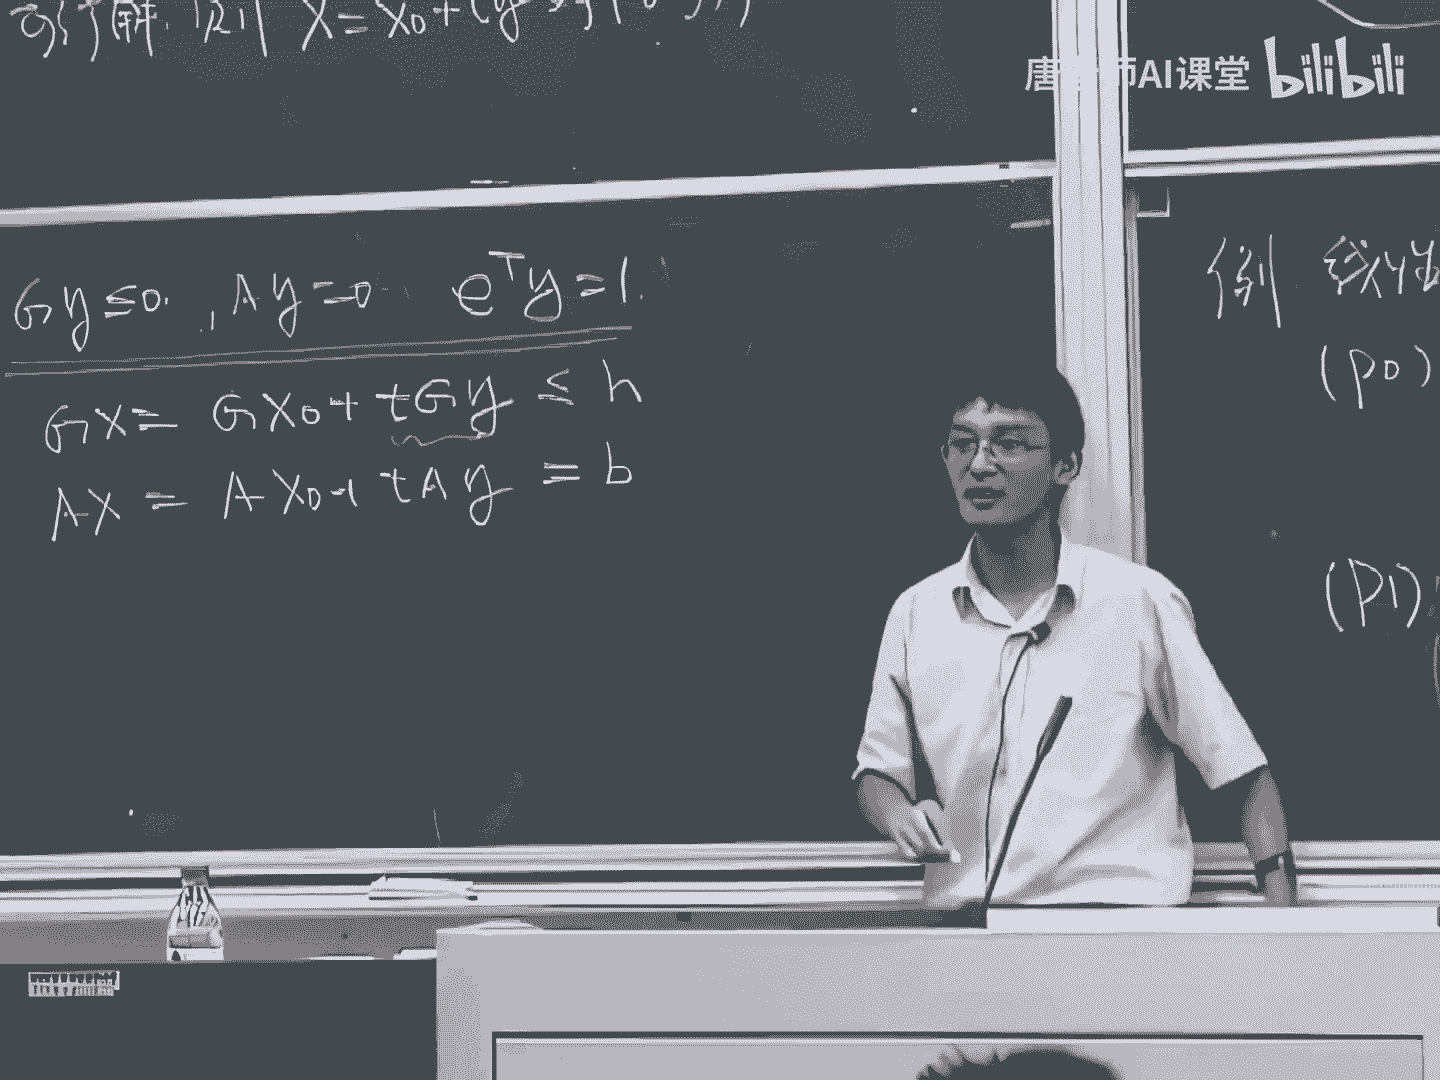 可行解, 则 X = X₀ +
唐 师AI课堂 bilibili
Gy ≤ 0, Ay = 0 eᵀy = 1.
GX = GX₀ + tGy ≤ h
AX = AX₀ + tAy = b
例 线性
(P0)
(P1)